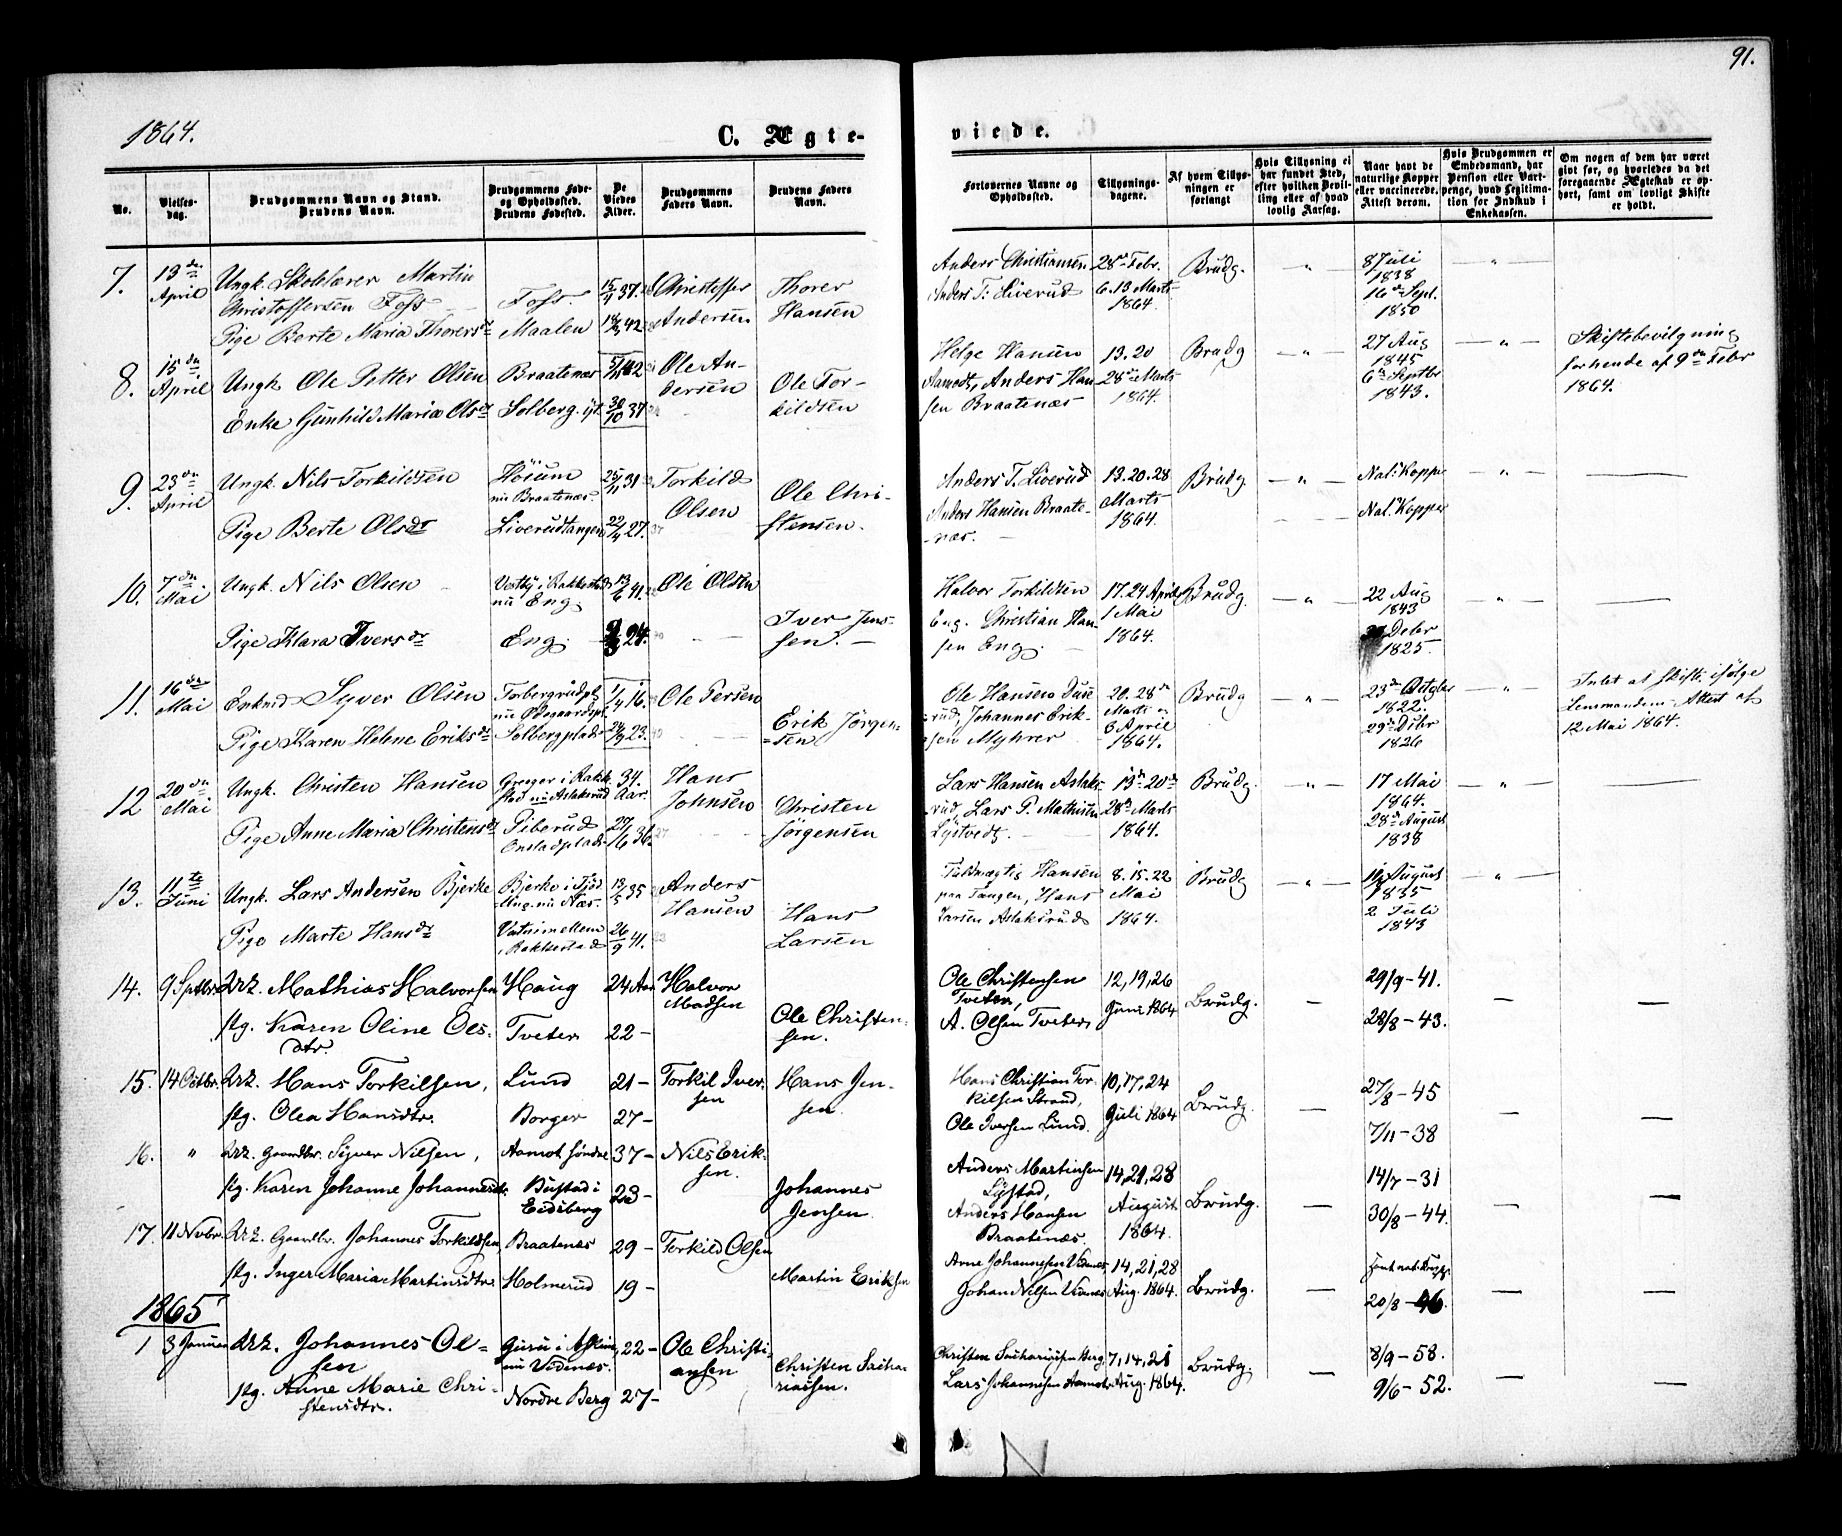 91.
1864.
C. Ægte-
viede.
No.
Vielses-
dag.
Brudgommens Navn og Stand.
Brudens Navn.
Brudgommens Føde-
og Opholdssted.
Brudens Fødested.
De
Viedes
Alder.
Brudgommens
Faders Navn.
Brudens Faders
Navn.
Forlovernes Navne og
Opholdssted.
Tillysnings-
dagene.
Af hvem Tillys-
ningen er
forlangt
Hvis Tillysning ei
har fundet Sted,
efter hvilken Bevil-
ling eller af hvad
lovlig Aarsag.
Naar havt de
naturlige Kopper
eller vaccinerede.
Attest derom.
Hvis Brudgommen er
Embedsmand, har
Pension eller Vart-
penge, hvad Legitima-
tion for Indskud i
Enkekassen.
Om nogen af dem har været
gift før, og hvorledes da det
foregaaende Ægteskab er op-
hørt, samt om lovligt Skifte
er holdt.
7. 13de April
Ungk. Skolelærer Martin
Christoffersen Foss Foss 15/1 37. Christoffer
Andersen
Pige Berte Maria Thorersdr Maalen 18/3 42 Thorer
Hansen
Anders Christiansen
Anders T. Liverud
28de Febr.
6. 13 Marts
1864.
Brudg. 8 Juli
1838
16de Sept.
1850
8. 15de April
Ungk. Ole Petter Olsen Braatenæs 42 Ole An-
dersen
Enke Gunhild Maria Olsdr Solberg 30/10 37 Ole Tor-
kildsen
Helge Hansen
Aamodt, Anders Han
sen Braatenæs
13. 20
28de Marts
1864.
Brudg 27 Aug
1845
6te Septbr
1843.
Skiftebevilgning
forhende af 9de Febr
1864.
9. 23de April
Ungk. Nils Torkildsen Høium
nu Braatenæs. 25/11 31 Torkild
Olsen
Pige Berte Olsdr Liverudtangen 22/4 27. Ole Chri-
stensen.
Anders T. Liverud
Anders Hansen Braate-
næs.
13. 20. 28
Marts
1864.
Brudg Nat: Kopper
Nat. Kopper
10. 7de Mai
Ungk. Nils Olsen Vestby i Rakkestad
nu Eng 13/6 41. Ole Olsen
Pige Klara Iversdr Eng. 24. Iver Jens-
sen.
Halvor Torkildsen
Eng. Christian Han-
sen Eng.
17. 24 April
1 Mai
1864.
Brudg. 22 Aug
1843
Debr
1825.
11. 16de Mai
Enkmd Syver Olsen Torbergrudpl
nu Ødegaardspl. 11/4 16. Ole Persen
Pige Karen Helene Eriksdr Solbergplads 24/9 23. Erik Jørgen-
sen
Ole Hansen Duse
rud, Johannes Erik-
sen Myhrer
20. 28de
Marts og
3 April
1864.
Brudg 23de Octgbr
1822.
29de Debr
1826
Intet at skifte ifølge
Lensmandens Attest af
12 Mai 1864.
12 20de Mai
Ungk. Christen Hansen Grenger i Rakk
stad nu Aslaksrud 34.
Aar. Hans
Johnsen
Pige Anne Maria Christensdr Piberud
Onstadplads 27/6 36. Christen
Jørgensen
Lars Hansen Aslaks-
rud, Lars P. Mathisen
Lystvedt.
13de 20de
28de Marts
1864.
Brudg. 17 Mai
1864.
28de August
1838
13. 11te Juni
Ungk. Lars Andersen Bjerke Bjerke i Tros
nu Næs. 13/5 35 Anders
Hansen
Pige Marte Hansdr Vatsimellem
i Rakkestad 26/9 41. Hans
Larsen
Fuldmægtig Hansen
paa Tangen, Hans
Larsen Aslaksrud
8. 15. 22
Mai
1864.
Brudg August
1835
2 Juli
1843
14. 9 Sptbr. Ungk. Mathias Halvorsen Haug 24 Aar Halvor
Madsen
Pg. Karen Oline Ols-
dtr. Tveter 22 - Ole Christen-
sen.
Ole Christensen
Tveter,
A. Olsen Tveter,
12, 19, 26
Juni 1864
Brudg. 29/9 - 41.
28/8 - 43.
15. 14 Octbr. Ungk. Hans Torkilsen, Lund 21 - Torkil Iver-
sen
Pg. Olea Hansdtr. Borger 27 - Hans Jen-
sen.
Hans Christian Tor-
kilsen Strand,
Ole Iversen Lund.
10, 17, 24
Juli 1864
Brudg. 27/8 - 45
7/11 - 38
16. " Ungk. Gaardbr. Syver Nilsen, Aamot søndre 37 - Nils Erik-
sen.
Pg. Karen Johanne Johannesdtr. Bustad i
Eidsberg 23 - Johannes
Jensen.
Anders Martinsen
Lystad,
Anders Hansen
Braatenæs.
14, 21, 28
August
1864.
Brudg. 14/7 - 31
30/8 - 44.
17. 11 Novbr. Ungk. Gaardbr. Johannes Torkildsen Braatenæs 29 - Torkild Olsen
Pg. Inger Maria Martinsdtr. Holmerud 19 - Martin Eriksen
Arne Johannesen Vidnæs,
Johan Nilsen Vidnæs
14, 21, 28
Aug. 1864.
Brudg. havt nat. Kopp.
20/8 - 46.
1865
1 3 Januar Ungk. Johannes Ol-
sen Guru i Askim,
nu Vidnæs. 22 - Ole Christi-
ansen
Pg. Anne Marie Chri-
stensdtr. Nordre Berg 27 - Christen Sacha-
riassen.
Christen Sachariasen Berg,
Lars Johannesen Aamot
7, 14, 21
Aug. 1864.
Brudg. 8/9 - 58.
9/6 - 52.